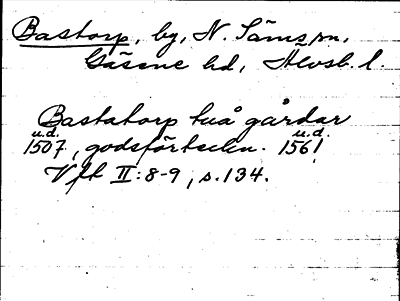 Bastorp, by, N. Säms sn,
Gäsene hd, Älvsb. l.
Bastatorp två gårdar
u.d. u.d.
1507, godsförteckn. 1561
Vft II: 8-9, s. 134.